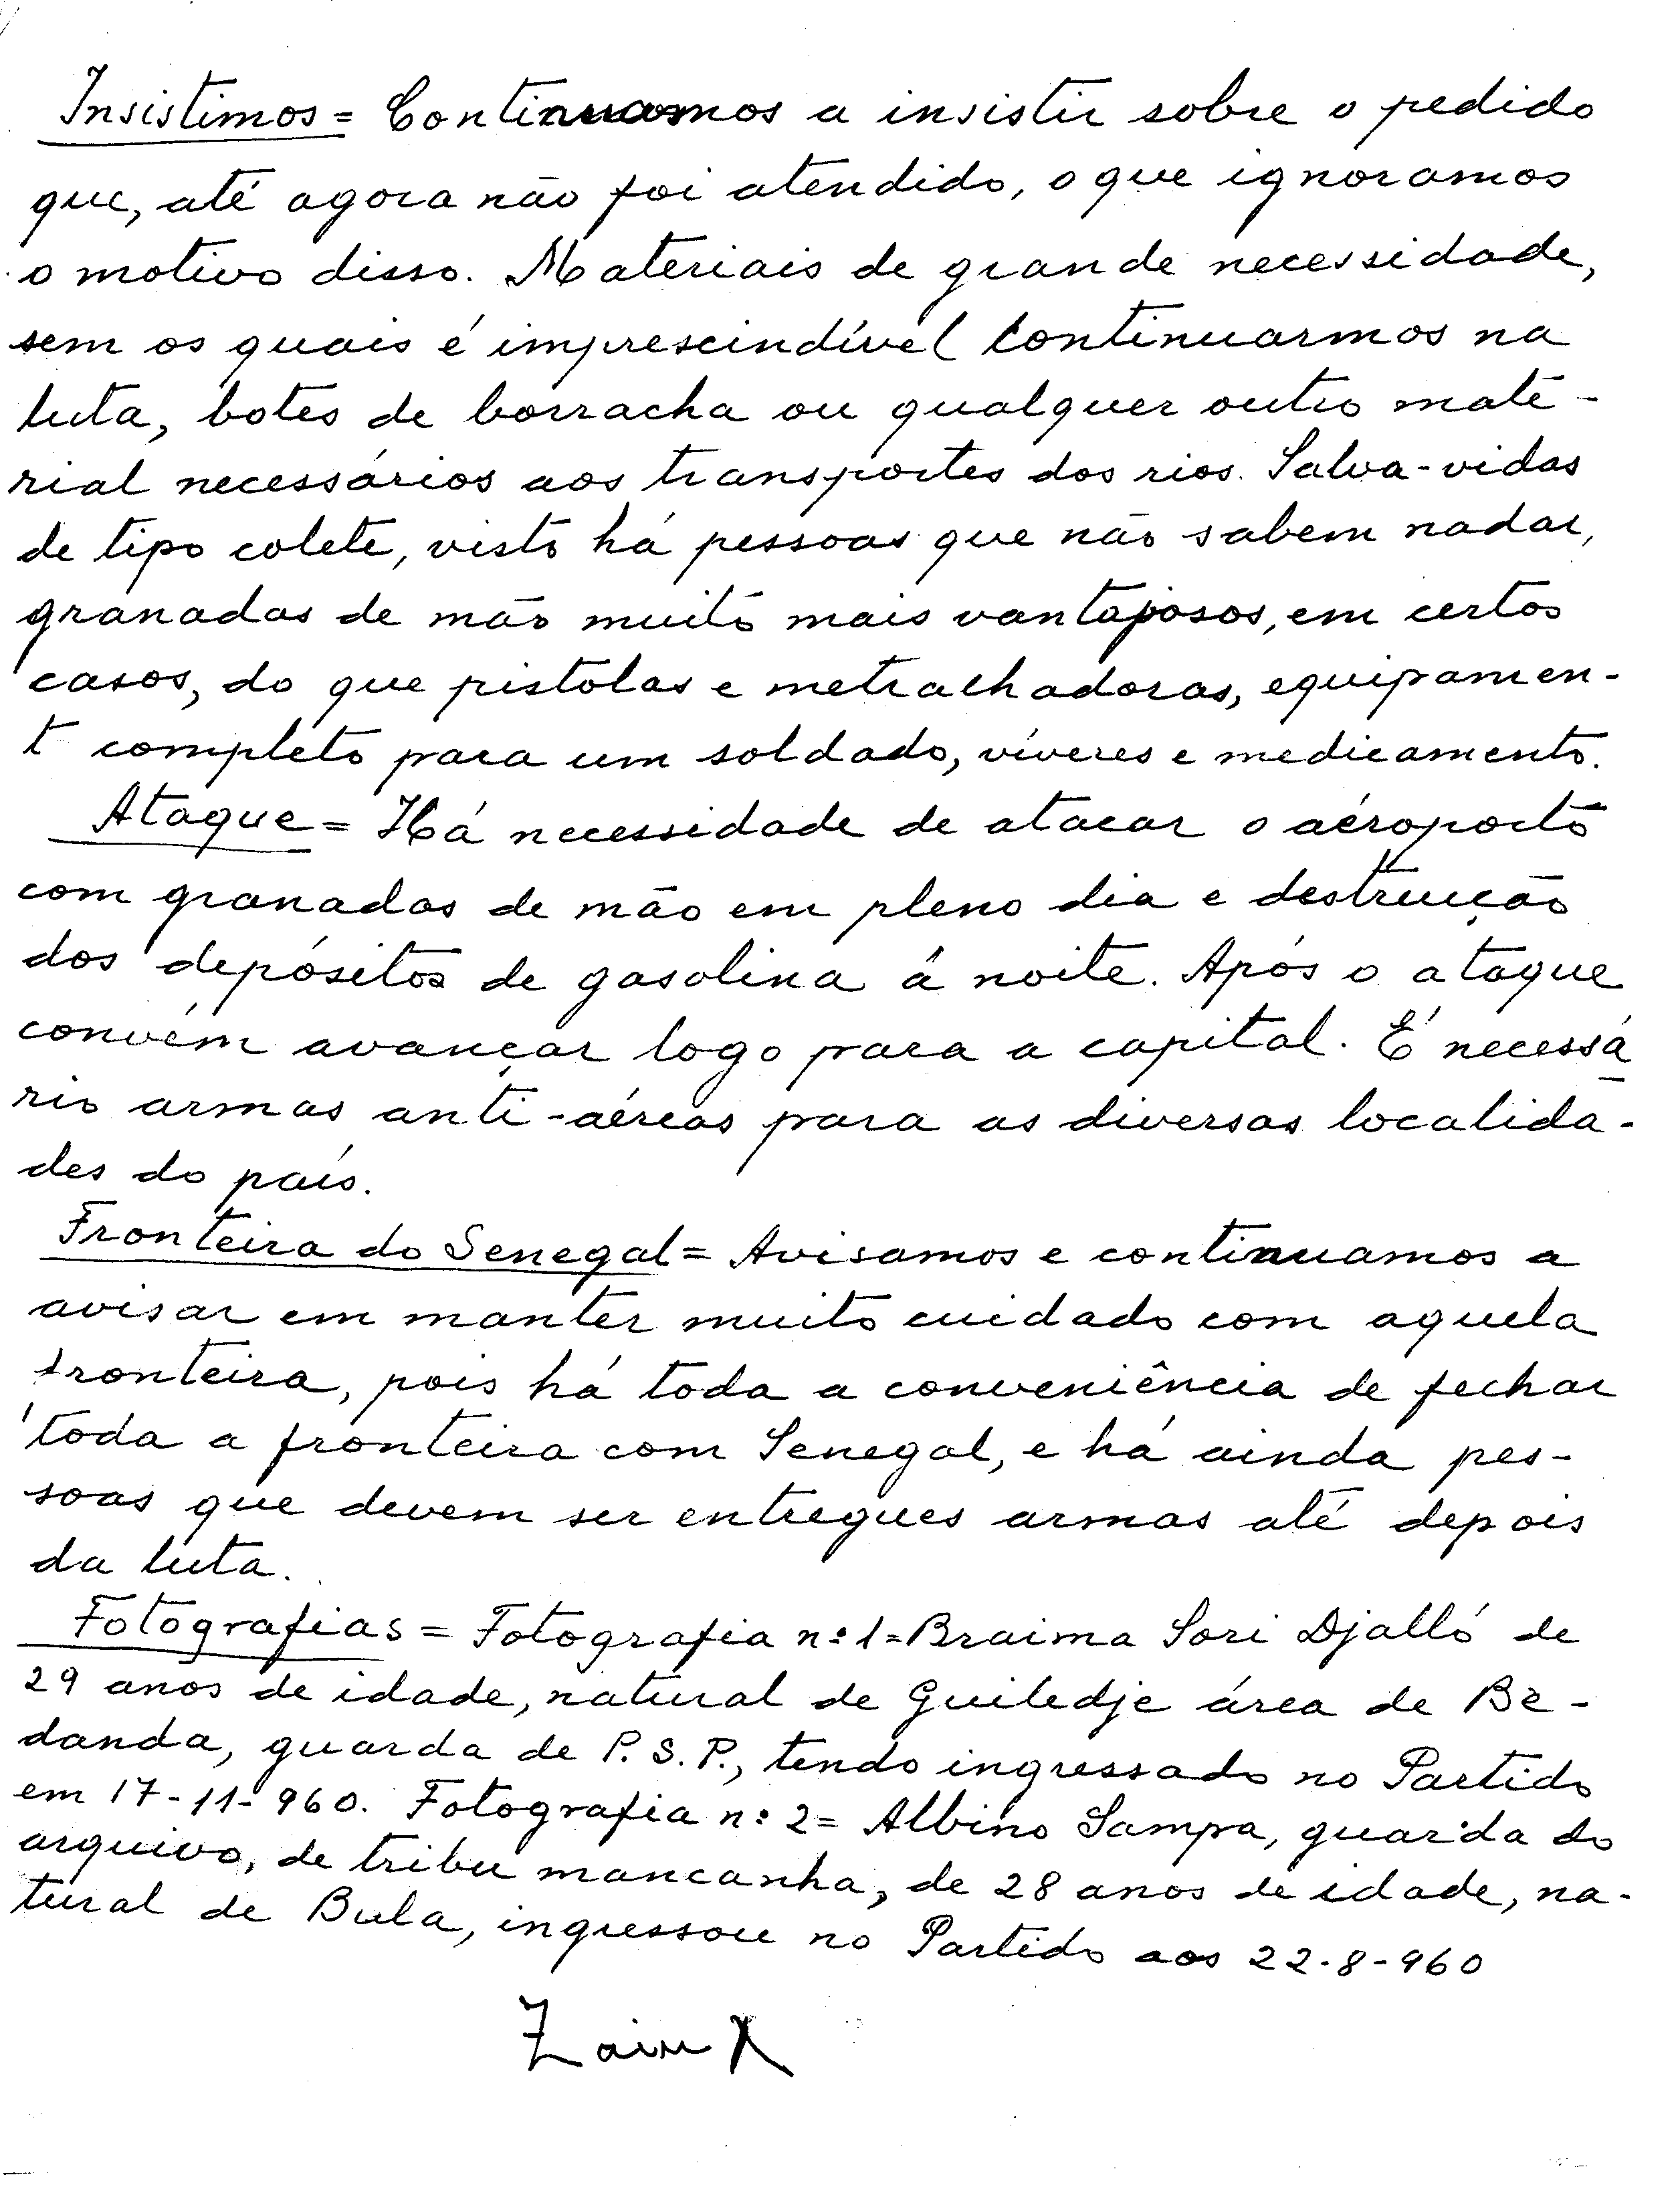 Insistimos = Continuamos a insistir sobre o pedido
que, até agora não foi atendido, o que ignoramos
o motivo disso. Materiais de grande necessidade,
sem os quais é imprescindível continuarmos na
luta, botes de borracha ou qualquer outro mate-
rial necessários aos transportes dos rios. Salva-vidas
de tipo colete, visto há pessoas que não sabem nadar,
granadas de mão muito mais vantajosos, em certos
casos, do que pistolas e metralhadoras, equipamen-
t completo para um soldado, víveres e medicamento.
Ataque = Há necessidade de atacar o aéroporto
com granadas de mão em pleno dia e destruição
dos depósitos de gasolina á noite. Após o ataque
convém avançar logo para a capital. É necessá
rio armas anti-aéreas para as diversas localida-
des do país.
Fronteira do Senegal = Avisamos e continuamos a
avisar em manter muito cuidado com aquela
fronteira, pois há toda a conveniência de fechar
toda a fronteira com Senegal, e há ainda pes-
soas que devem ser entregues armas até depois
da luta.
Fotografias = Fotografia nº 1 = Braima Sori Djalló de
29 anos de idade, natural de Guiledje área de Be-
danda, guarda de P. S. P., tendo ingressado no Partido
em 17-11-960. Fotografia nº 2 = Albino Sampa, guarda do
arquivo, de tribu mancanha, de 28 anos de idade, na-
tural de Bula, ingressou no Partido aos 22-8-960